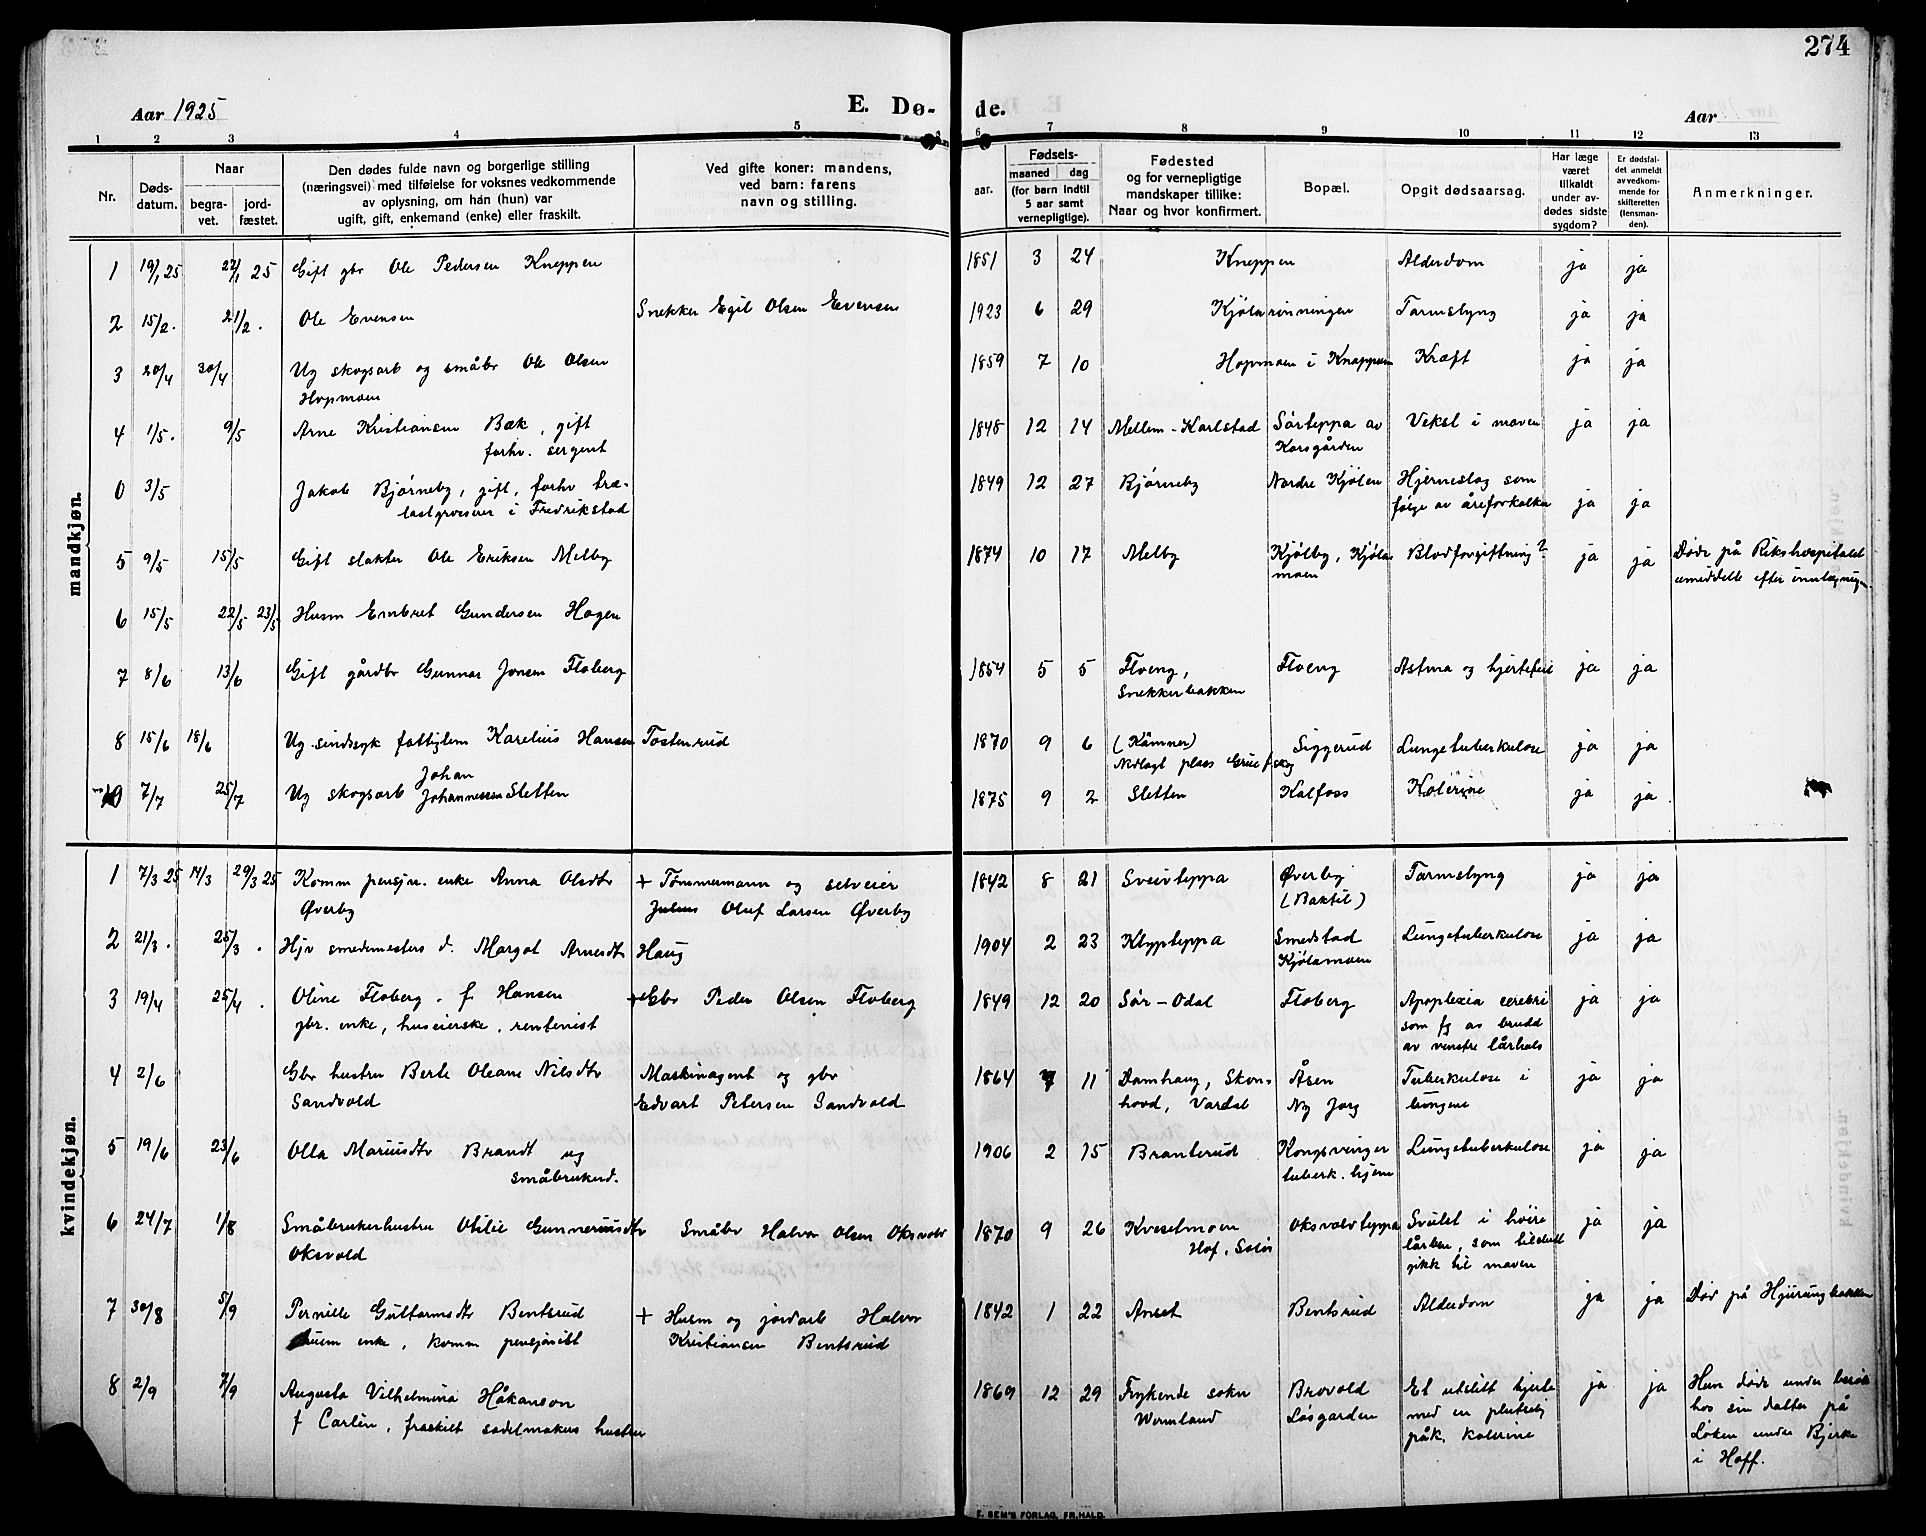 274
Aar 1925
E. Dø-
de.
Aar
1 2 3 4 5 6 7 8 9 10 11 12 13
Nr.
Døds-
datum.
Naar
begra-
vet.
jord-
fæstet.
Den dødes fulde navn og borgerlige stilling
(næringsvei) med tilføielse for voksnes vedkommende
av oplysning, om hán (hun) var
ugift, gift, enkemand (enke) eller fraskilt.
Ved gifte koner: mandens,
ved barn: farens
navn og stilling.
aar.
Fødsels-
maaned dag
(for barn indtil
5 aar samt
vernepligtige).
Fødested
og for vernepligtige
mandskaper tillike:
Naar og hvor konfirmert.
Bopæl.
Opgit dødsaarsag.
Har læge
været
tilkaldt
under av-
dødes sidste
sygdom?
Er dødsfal-
det anmeldt
av vedkom-
mende for
skifteretten
(lensman-
den).
Anmerkninger.
mandkjøn.
1 19/1 25 22/1 25 Gift gbr Ole Pedersen Kneppen 1851 3 24 Kneppen Alderdom ja ja
2 15/2. 21/2. Ole Evensen Snekker Egil Olsen Evensen 1923 6 29 Kjølarønningen Tarmslyng ja ja
3 20/4 30/4 Ug skogsarb og småbr Ole Olsen 1859 7 10 Hopmoen i Knappen Kræft ja ja
Hopmoen
4 1/5. 9/5 Arne Kristiansen Bæk, gift 1848 12 14 Mellem-Karlstad Sørteppa av Vekst i maven ja ja
forhv. sergent Korsgården
0 3/5 Jakob Bjørneby, gift, forhv træ- 1849 12 27 Bjørneby Nordre Kjølen Hjerneslag som
i Fredrikstad følge av åreforkalkn ja ja
5 9/5 15/5 Gift slakter Ole Eriksen Melby 1874 10 17 Melby Kjølby, Kjøla Blodforgiftning? ja ja Døde på Rikshospitalet
moen efter
6 15/5 22/5 23/5 Husm Embret Gundersen Hagen
7 8/6 13/6 Gift gårdbr Gunnar Jonsen Floberg 1854 5 5 Floeng, Floeng Astma og hjertefeil ja ja
Snekkerbakken
8 15/6 18/6 Ug. sindssyk fattiglem Karelius Hansen Tostenrud 1870 9 6 (Kämner) Siggerud Lungetuberkulose ja ja
Nedlagt plass Grue f skog
Johan
10 7/7 25/7 Ug skogsarb Johannessen Sletten 1875 9 2 Sletten Kalfoss Kolerine ja ja
kvindekjøn.
1 7/3 25 14/3 29/3 25 Komm pensjn. enke Anna Olsdtr + Tømmermann og selveier 1842 8 21 Sveivteppa Øverby Tarmslyng ja ja
Øverby Julius Oluf Larsen Øverby (Baktil)
2 21/3. 25/3. Hjv smedmesters d. Margot Arnesdtr Haug 1904 2 23 Klypteppa Smedstad Lungetuberkulose ja ja
Kjølamoen
3 19/4 25/4. Oline Floberg. f. Hansen + Gbr Peder Olsen Floberg 1849 12 20 Sør-Odal Floberg Apoplexia cerebri ja ja
gbr. enke, huseierske, rentenist som fg av brudd
av venstre lårhals
4 2/6 Gbr hustru Berte Oleane Nilsdtr Maskinagent og gbr 1864 7 11 Damhaug, Skon- Åsen Tuberkulose i ja ja
Sandvold Edvart Petersen Sandvold hovd, Vardal Ny Jorg lungene
5 19/6 23/6 Olla Mariusdtr Brandt ug 1906 2 15 Branterud Kongsvinger Lungetuberkulose ja ja
småbrukerd. tuberk. hjem
6 24/7 1/8 Småbrukerhustru Otilie Gunneriusdtr Småbr Halvor Olsen Oksvold 1870 9 26 Kveselmoen Oksvoldteppa Svulst i høire ja ja
Oksvold Hof, Solør lårben, som tilslutt
gikk til maven
7 30/8 5/9 Pernille Guttormsdtr Bentsrud + Husm og jordarb Halvor 1842 1 22 Anset Bentsrud Alderdom ja ja Død på
husm enke, komm pensjonist Kristiansen Bentsrud
8 2/9 7/9 Augusta Vilhelmina Håkanson 1869 12 29 Frykende sokn Brovold Et utslitt hjerte ja ja Hun døde under besøk
f Carlin, fraskilt sadelmakers hustru Wermland Løsgarden med en plutselig hos sin datter på
påk. kolerine Løken under Bjerke
i Hoff.
E. SEM'S FORLAG, FR.HALD.